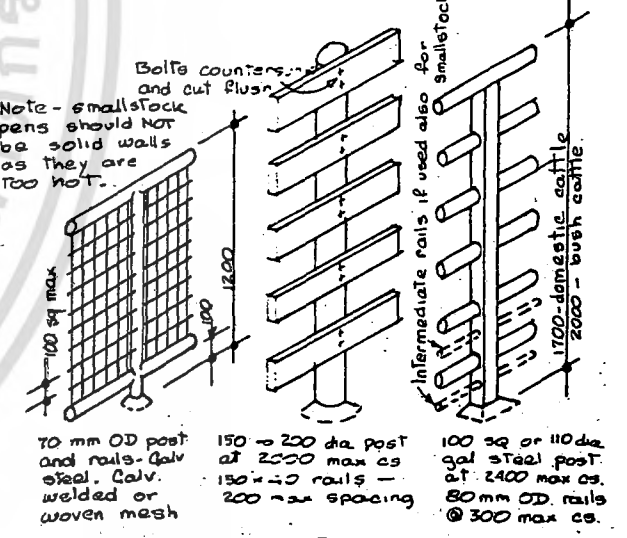 Bolts counters
and cut flush
Note - smallstock
pens should NOT
be solid walls
as they are
TOO HOT.
100 sq max
1200
100
Intermediate rails if used also for
smallstock
1700 - domestic cattle
2000 - bush cattle.
70 mm OD post
and rails - Galv
steel. Galv.
welded or
woven mesh
150 - 200 dia post
at 2000 max cs
rails -
200 max spacing
100 sq or 110 dia
gal steel post
at 2400 max cs.
80 mm OD. rails
@ 300 max cs.